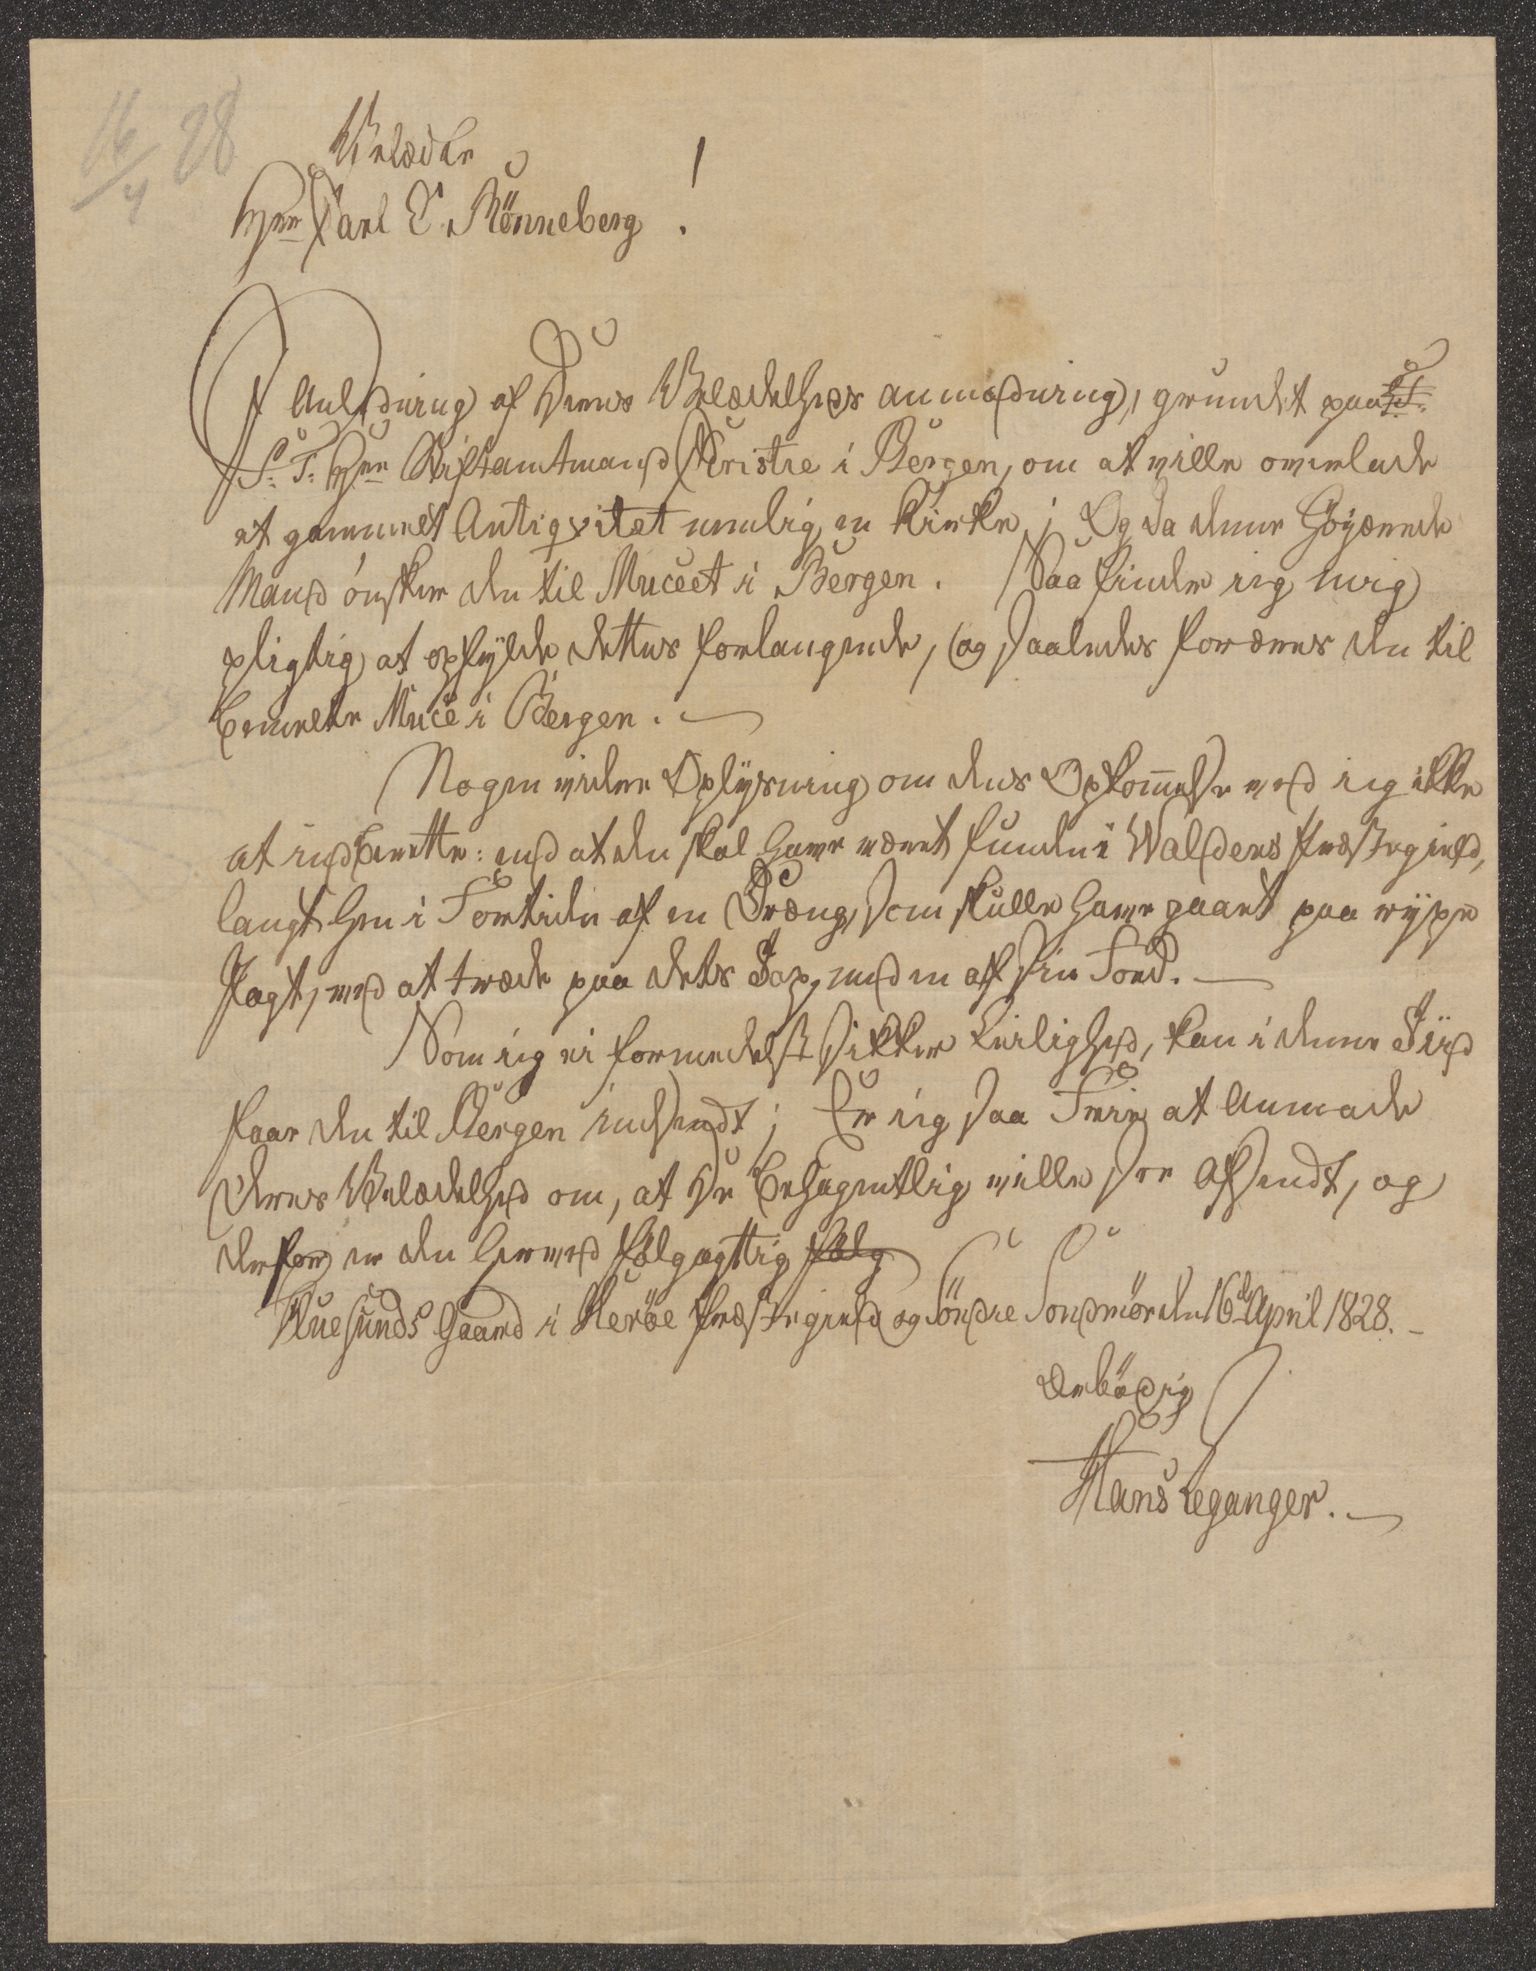 16/4 28
Velædle
Herr Carl E. Rönneberg !
I Anledning af Deres Velædelheds anmodning, grundet paa S. T.
S: T: Herr Stiftamtmand Christie i Bergen, om at ville overlade
et gammelt Antiqvitet nemlig en Kirke; Og da denne Höyærende
Mand ønsker den til Muceet i Bergen. Saa finder jeg mig
pligtig at opfylde dettes forlangende, og saaledes foræres den til
bemelte Mucé i Bergen.
Nogen videre Oplysning om dens Opkommelse ved jeg ikke
at indberette: end at den skal have været funden i Walders Præstegield,
langt hen i Fortiden af en Dræng, som skulle have gaaet paa rype
Jagt, ved at træde paa dets Tap, med en af sin Foed.
Som jeg ei formedelst sikker Leilighed, kan i denne Tiid
faae den til Bergen indsendt; Er jeg saa Frie at Anmode
Deres Velædelhed om, at De behagentlig ville see afsendt, og
derfor er den herved fölgagttig fölg
Huesunds Gaard i Heröe Præstegield og Söndre Söndmör den 16de April 1828.
Ærbödig
Hans Leganger.